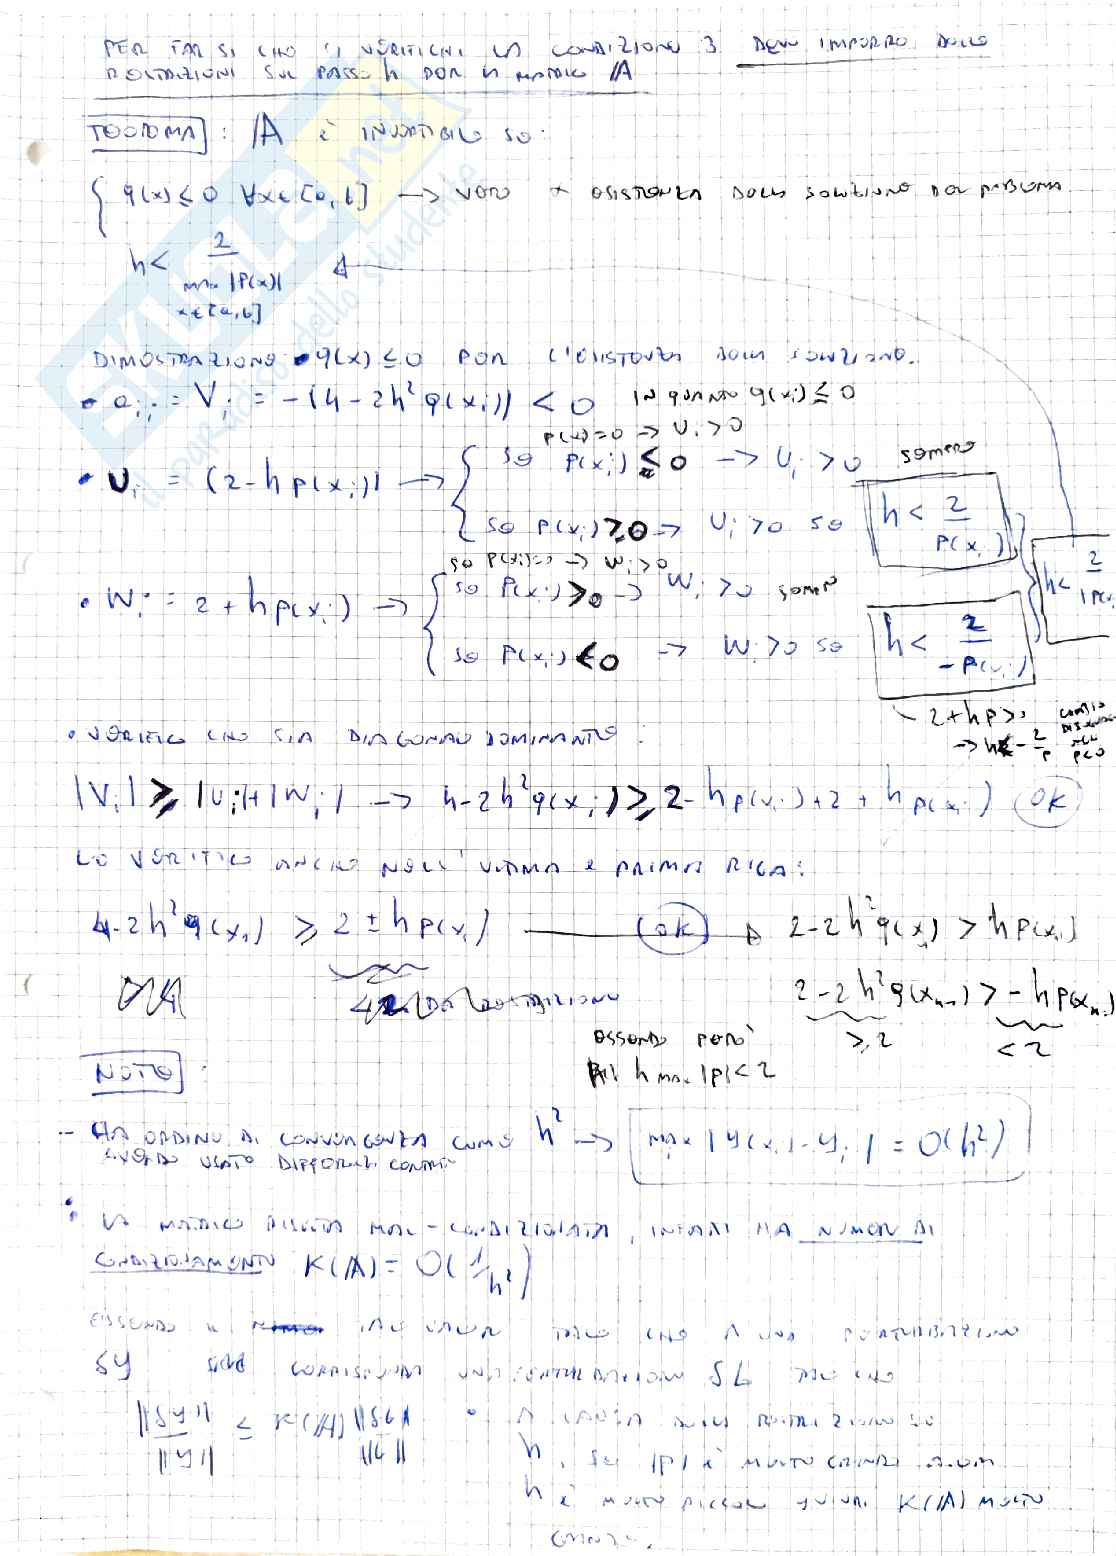 PER FAR SI CHE SI VERIFICHI LA CONDIZIONE 3 DEVO IMPORRE DELLE
RESTRIZIONI SUL PASSO h PER LA MATRICE /A
TEOREMA : /A È INVERTIBILE SE:
q(x) ≤ 0 ∀x∈[a,b] → VERO X ESISTENZA DELLA SOLUZIONE DEL PROBLEMA
h < 2 / max |P(x)|
x∈[a,b]
DIMOSTRAZIONE • q(x) ≤ 0 PER L'ESISTENZA DELLA SOLUZIONE.
• = V_i = -(4 - 2h² q(x_i)) < 0 IN QUANTO q(x_i) ≤ 0
P(x)=0 → U_i > 0
• U_i = (2 - h p(x_i)) → SE P(x_i) ≤ 0 → U_i > 0 SEMPRE
SE P(x_i) ≥ 0 → U_i > 0 SE h < 2/P(x_i)
SE P(x_i)=0 → W_i > 0
• W_i = 2 + h p(x_i) → SE P(x_i) > 0 → W_i > 0 SEMPRE
h < 2/|P(x_i
SE P(x_i) < 0 → W_i > 0 SE h < 2/-P(x_i)
2 + hp > 0 CAMBIO
→ h < -2/p P<0
• VERIFICO CHE SIA DIAGONALE DOMINANTE :
|V_i| ≥ |U_i| + |W_i| → 4 - 2h² q(x_i) ≥ 2 - h p(x_i) + 2 + h p(x_i) OK
LO VERIFICO ANCHE NELL'ULTIMA E PRIMA RIGA:
4 - 2h² q(x_1) ≥ 2 ± h p(x_i) OK 2 - 2h² q(x_1) > h p(x_1)
2 - 2h² q(x_n-1) > - h p(x_n-1)
≥ 2 < 2
ESSENDO PERÒ
h max |P| < 2
NOTE :
- HA ORDINE DI CONVERGENZA COME h² → max |y(x_i) - y_i| = O(h²)
AVENDO USATO DIFFERENZE CENTRATE
• LA MATRICE RISULTA MAL-CONDIZIONATA, INFATTI HA NUMERO DI
CONDIZIONAMENTO K(/A) = O(1/h²)
ESSENDO IL VALORE TALE CHE A UNA PERTURBAZIONE
δy CORRISPONDE UNA PERTURBAZIONE δb TALE CHE
||δy|| / ||y|| ≤ K(/A) ||δb|| / ||b|| • A CAUSA DELLA RESTRIZIONE SU
h, SE |P| È MOLTO GRANDE
h È MOLTO PICCOLO K(/A) MOLTO
GRANDE.
SKUOLA.net
il paradiso dello studente